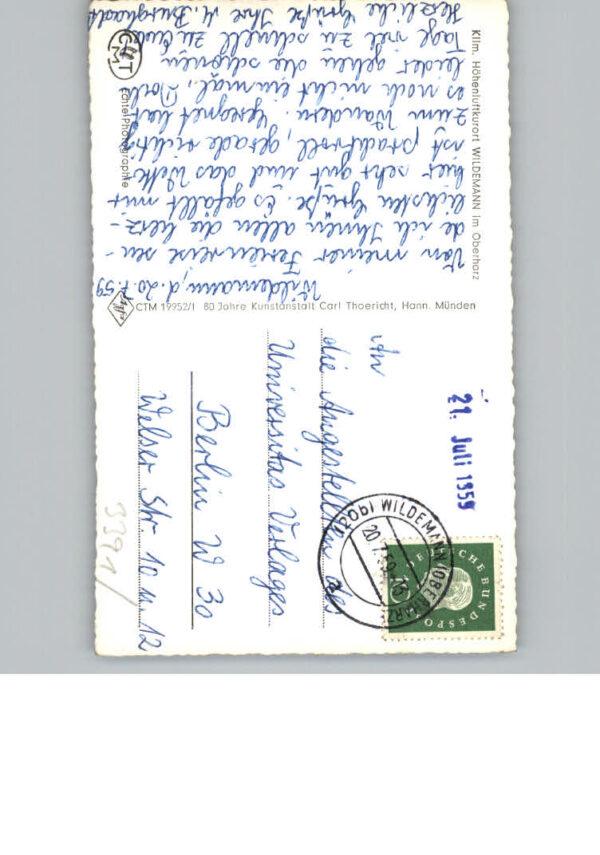 Klim. Höhenluftkurort WILDEMANN im Oberharz
Wildemann, d. 20.7.59
Von meiner Ferienreise sen-
de ich Ihnen allen die herz-
lichsten Grüße. Es gefällt mir
hier sehr gut und das Wetter
ist prachtvoll, gerade richtig
zum Wandern. Geregnet hat
es noch nicht einmal. Doch
leider gehen die schönen
Tage viel zu schnell zu Ende
Herzliche Grüße Ihre
CMT
Photographie
CTM 19952/I 80 Jahre Kunstanstalt Carl Thoericht, Hann. Münden
21. Juli 1959
(20b) WILDEMANN (OBERHARZ)
20.7.59
a
DEUTSCHE BUNDESPOST
An
die Angestellten des
Universitas Verlages
Berlin W 30
Welser Str 10 u. 12
3391/